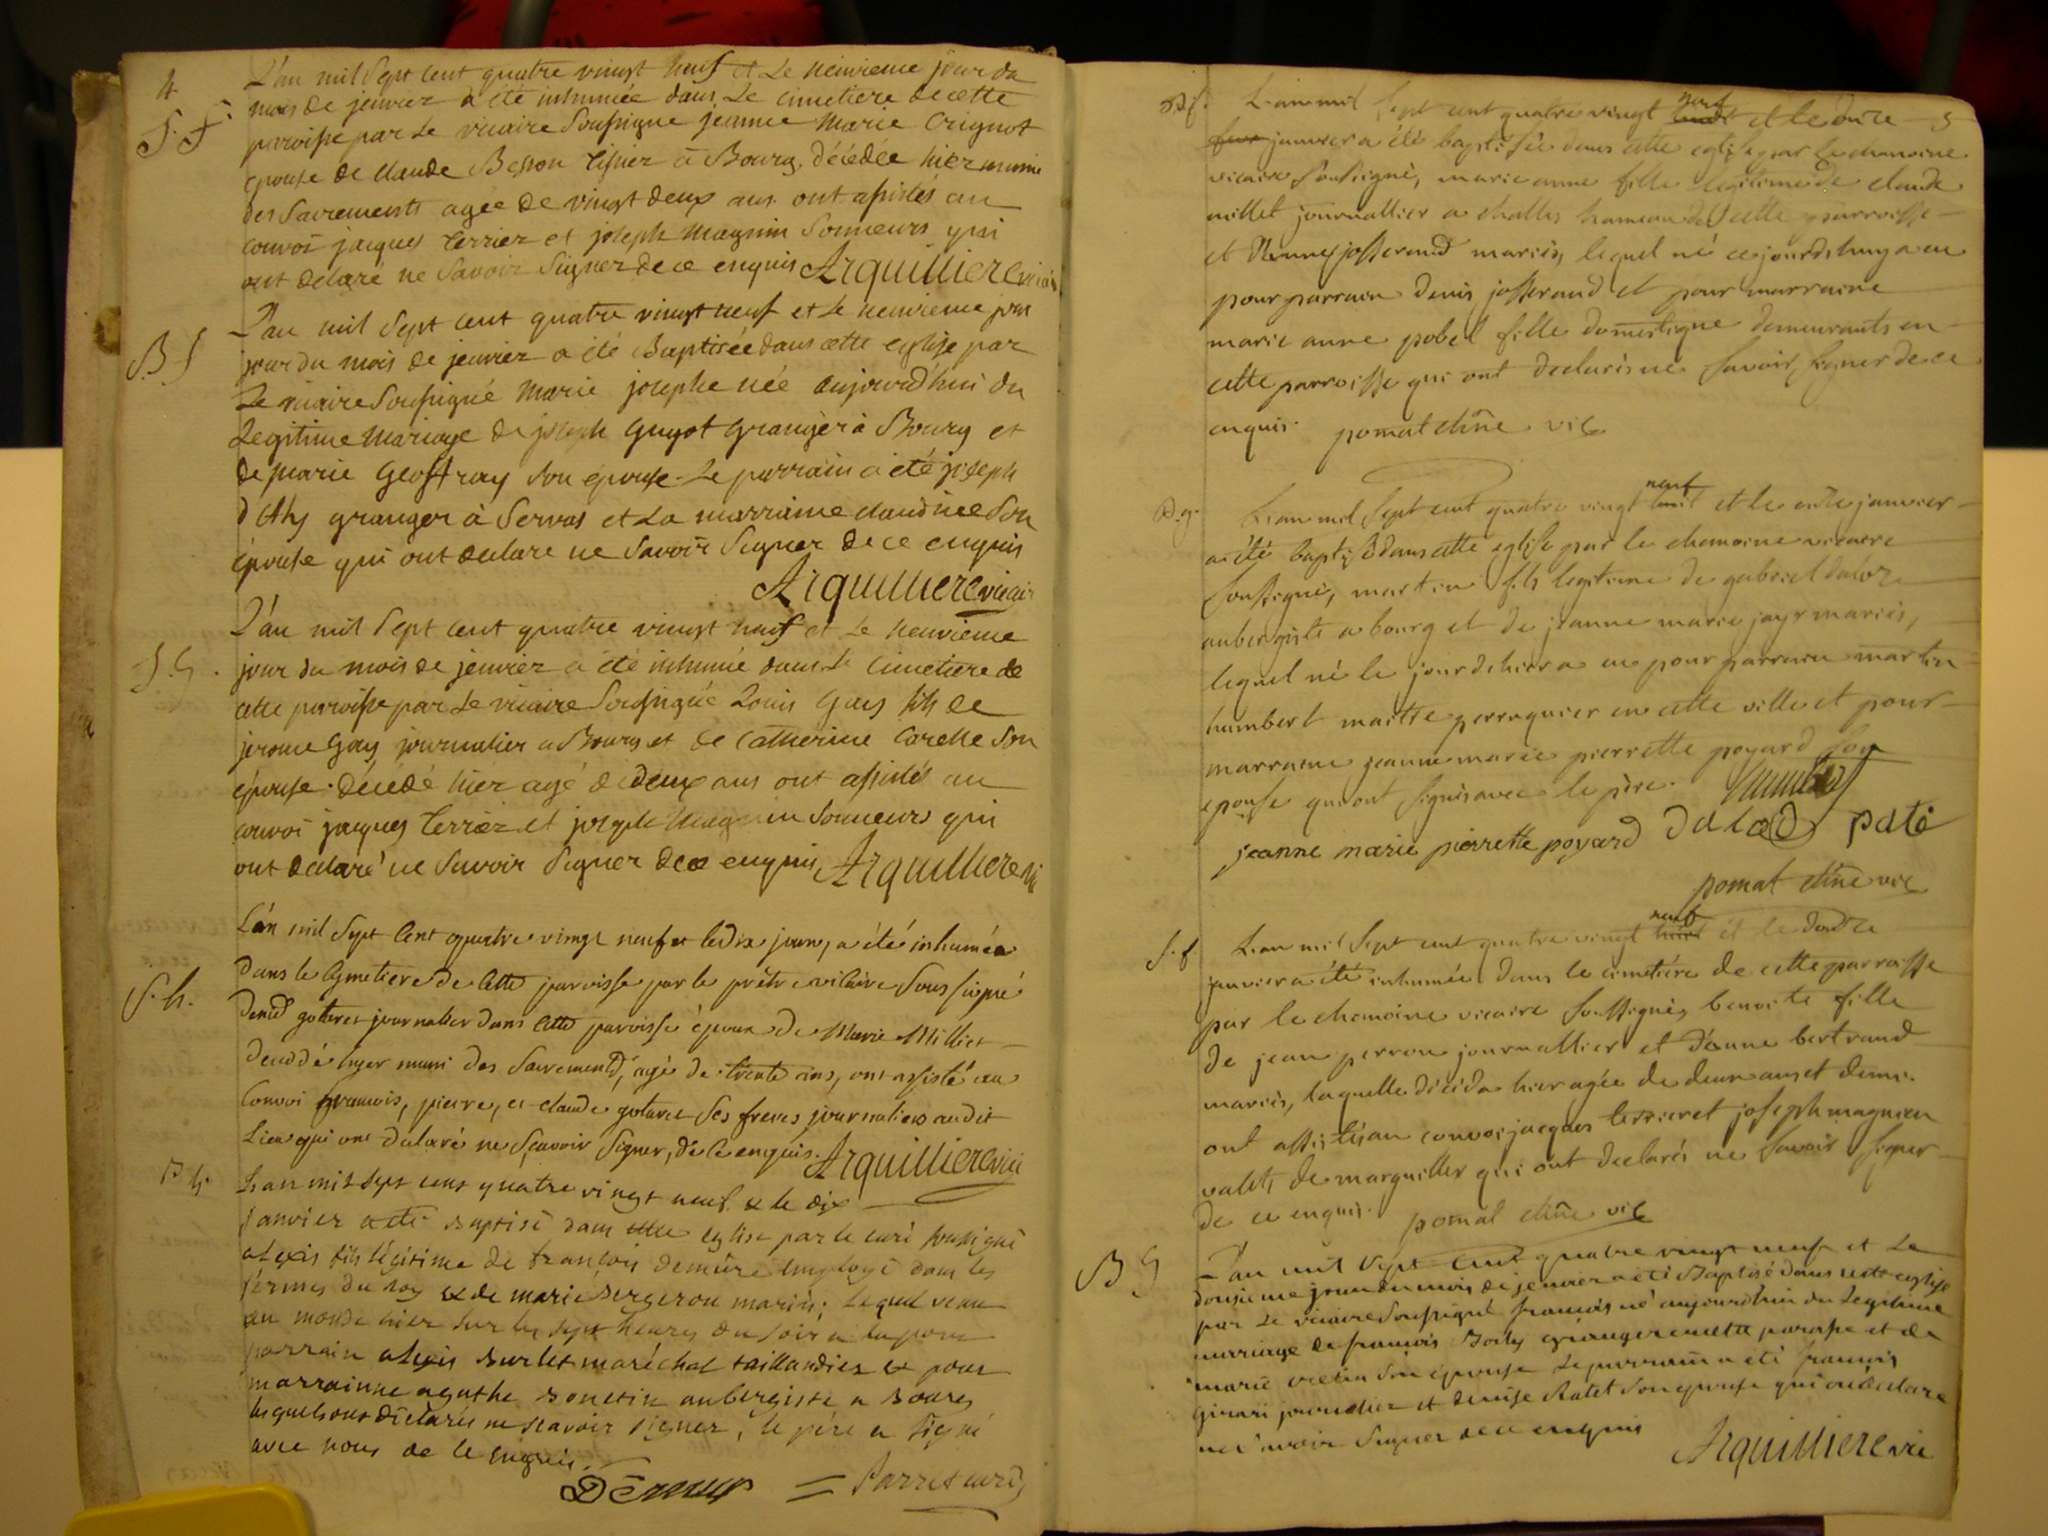 4
L'an mil Sept cent quatre vingt neuf et Le neuvieme jour du
mois de jenvier a été inhumée dans Le cimetiere de cette
S. F. paroisse par Le vicaire Soussigne jeanne Marie Crignot
epouse de Claude Besson tissier à Bourg. décédée hier munie
des Sacrements agée de vingt deux ans ont assistés au
convoi jacques terrier et joseph Magnin Sonneurs qui
ont declare ne Savoir Signer de ce enquis Arquilliere vicai
L'an mil Sept cent quatre vingt neuf et Le neuvieme jour
B. f jour du mois de jenvier a été Baptisée dans cette eglise par
Le vicaire Soussigné Marie josephe née aujourd'hui du
Legitime Mariage de joseph Guyot Granger à Bourg et
de Marie Geoffray Son épouse. Le parrain a été joseph
granger à Servas et La marraine claudine Son
épouse qui ont declare ne Savoir Signer de ce enquis
Arquilliere vicai
L'an mil Sept cent quatre vingt neuf et Le neuvieme
S. G. jour du mois de jenvier a été inhumé dans Le cimetiere de
cette paroisse par Le vicaire Soussigné Louis Gay fils de
jerome Gay journalier a Bourg et de Catherine Carelle Son
épouse. décédé hier agé de deux ans ont assistés au
convoi jacques terrier et joseph Magnin Sonneurs qui
ont declaré ne Savoir Signer de ce enquis Arquilliere vic
L'an mil Sept Cent quatre vingt neuf et le dix janv, a été inhumée
dans le Cymetiere de Cette parroisse par le prêtre vicaire Sous signé
S. h. Denis goteret journalier dans Cette parroisse époux de Marie Milliet
decedé hyer muni des Sacrements, agé de trente ans, ont assisté au
Convoi francois, pierre, et claude goteret Ses freres journaliers audit
Lieu qui ont déclaré ne Sçavoir Signer, de Ce enquis. Arquilliere vic
B h. L an mil sept cent quatre vingt neuf & le dix
janvier a été Baptisé dans cette eglise par le curé soussigné
alexis fils légitime de francois demure employé dans les
fermes du roy & de marie Bergeron mariés; lequel venu
au monde hier sur les sept heures du soir a eu pour
parrain alexis Burlet maréchal taillandier & pour
marrainne agathe Bonetin aubergiste a Bourg
lesquels ont déclarés ne scavoir signer, le père a signé
avec nous de ce enquis.
Demure = Parret curé
B. f. L an mil Sept cent quatre vingt neuf et le onze 5
janvier a été baptisée dans cette eglise par le chanoine
vicaire Soussigné, marie anne fille legitime de claude
millet journallier a challes hameau de cette parroisse
et d'anne josserand mariés, lequel né ce jourdehuy a eu
pour parrain denis josserand et pour marraine
marie anne pobel fille domestique demeurants en
cette parroisse qui ont declarés ne Savoir Signer de ce
enquis. pomat chne vic
B. g. L an mil Sept cent quatre vingt neuf et le onze janvier
a été baptisé dans cette eglise par le chanoine vicaire
Soussigné, martin fils legitime de gabriel
aubergiste a bourg et de jeanne marie jayr mariés,
lequel né le jour dehier a eu pour parrain martin
humbert maitre perruquier en cette ville et pour
marraine jeanne marie pierrette poyard Son
epouse qui ont signés avec le père. humbert
jeanne marie pierrette poyard
pomat chne vic
S. f. L an mil Sept cent quatre vingt neuf et le douze
janvier a été inhumée dans le cimetière de cette parroisse
par le chanoine vicaire Soussigné, benoite fille
de jean perron journallier et d'anne bertrand
mariés, laquelle décéda hier agée de deux ans et demi.
ont assisté au convoi jacques terrier et joseph magnien
valets de marguillier qui ont declarés ne Savoir Signer
de ce enquis. pomat chne vic
B G L'an mil Sept Cent quatre vingt neuf et Le
douzieme jour du mois de jenvier a été Baptisé dans cette eglise
par Le vicaire Soussigné francois né aujourdhui du Legitime
mariage de francois Boily granger en cette paroisse et de
marie Son épouse Le parrain a été francois
girard journalier et denise Ratet Son epouse qui ont declare
ne Savoir Signer de ce enquis Arquilliere vic